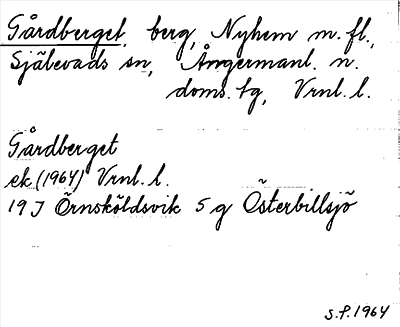 Gårdberget, berg, Nyhem m.fl.,
Själevads sn, Ångermanl. n.
doms. tg, Vrnl. l.
Gårdberget
ek (1964) Vrnl. l.
19 J Örnsköldsvik 5 g Österbillsjö
S.P. 1964